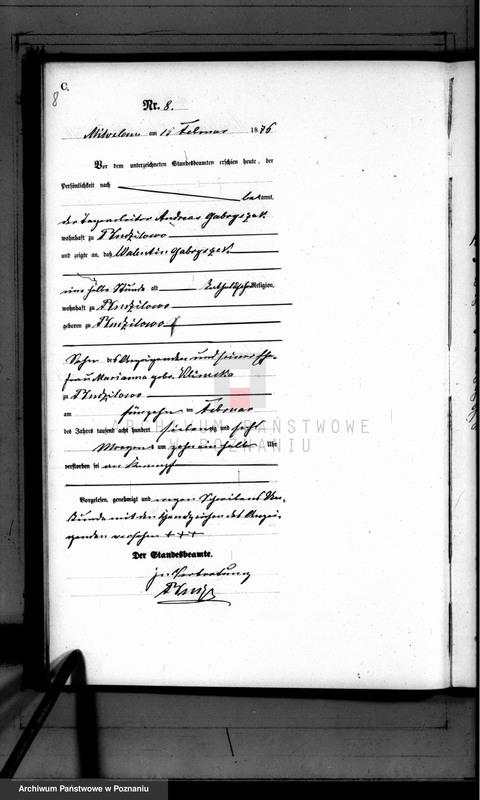 C.
8
Nr. 8.
am 15 Februar 1876
Vor dem unterzeichneten Standesbeamten erschien heute, der
Persönlichkeit nach
bekannt,
der Andreas Gabryszak
wohnhaft zu
und zeigte an, daß Valentin Gabryszak
eine halbe Stunde alt katholischer Religion,
wohnhaft zu
geboren zu
Sohn des Anzeigenden und seiner Ehe-
frau Marianna geb.
zu
am fünfzehn ten Februar
des Jahres tausend acht hundert siebenzig und sechs
Morgens um zehn ein halb Uhr
verstorben sei an Krampf
Vorgelesen, genehmigt und wegen Schreibens Un-
kunde mit den Handzeichen des Anzei-
genden versehen + + +
Der Standesbeamte.
in Vertretung
ARCHIWUM PAŃSTWOWE
W POZNANIU
Archiwum Państwowe w Poznaniu